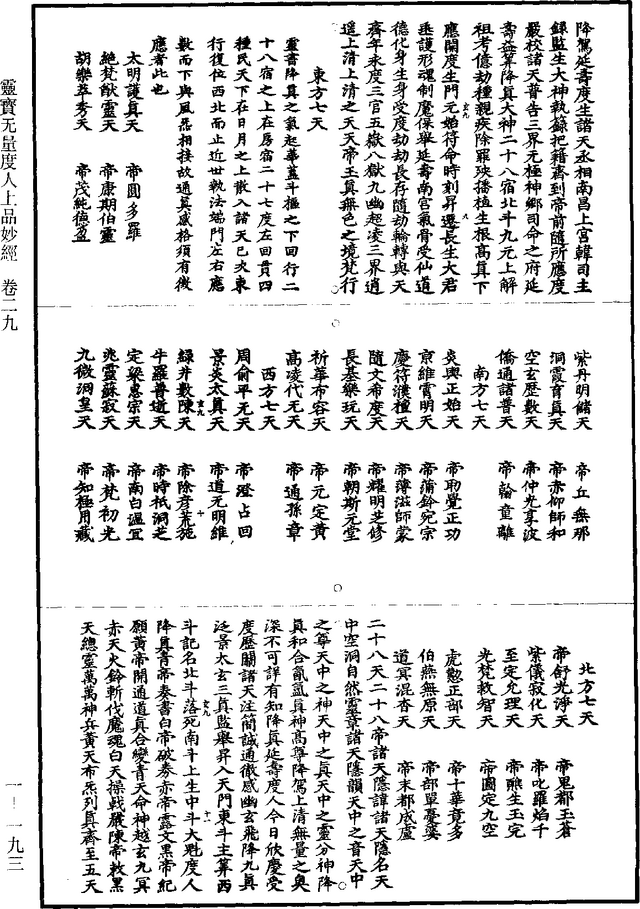 降駕延壽度生諸天丞相南昌上宮韓司主
錄監生大神執籙把籍齎到帝前隨所應度
嚴校諸天普告三界无極神鄉司命之府延
壽益筭降真大神二十八宿北斗九元上解
祖考億劫種親疾除罪殃播植生根高真下
應開度生門元始符命時刻昇遷長生大君
垂護形魂制魔保舉延壽南宮氣骨受仙道
德化身生身受度劫劫長存隨劫輪轉與天
齊年永度三官五嶽八獄九幽超凌三界逍
遥上清上清之天天帝玉真無色之境梵行
東方七天
靈書降真之氣起華蓋斗樞之下回行二
十八宿之上在房宿二十七度左回貫四
種民天下在日月之上散入諸天已次東
行復位西北而止近世執法端門左右應
數而下與風炁相接故通真感格須有徵
應者此也
太明護真天 帝圓多羅
絶梵猷靈天 帝康期伯靈
胡樂萃秀天 帝茂純德盈
紫丹明緒天 帝丘無那
洞霞育真天 帝赤仰師和
空玄歷數天 帝仲光享波
僑通諸普天 帝翰童離
南方七天
炎輿正始天 帝聏覺正功
京維霄明天 帝蒲鈴宛宗
慶符濮檀天 帝薄滋師蒙
隨文希度天 帝耀明芝修
長基樂玩天 帝朝斯元堂
祈華布容天 帝元定黄
高凌代无天 帝通孫章
西方七天
周俞平无天 帝澄占回
景炎太真天 帝道元明維
綠井數陳天 帝除彥荒施
牛羅普道天 帝時柢洞之
定梁惠宗天 帝南白逼冝
兆靈蘇寂天 帝梵初光
九微洞皇天 帝知極用藏
北方七天
帝舒光淨天 帝鬼都玉蒼
紫儀寂化天 帝叱羅焰千
至定允理天 帝醮生玉完
光梵敕智天 帝圓定九空
虎懃正部天 帝十華竟多
伯燕無原天 帝部單憂蔞
道冥混杳天 帝末都戍盧
二十八天二十八帝諸天隱諱諸天隱名天
中空洞自然靈章諸天隱韻天中之音天中
之尊天中之神天中之真天中之靈分神降
真和合氤氳真神高尊降駕上清無量之奥
深不可詳有知降真延壽度人今日欣慶受
度歷關諸天注簡誠通徹感幽玄飛降九真
泛景太玄三真監舉昇入天門東斗主筭西
斗記名北斗落死南斗上生中斗大魁度人
降真青帝奏書白帝破券赤帝露文黑帝紀
願黄帝開通道真合變音天命神越玄九冥
赤天火鈴斬伐魔魂白天操戟嚴陳帝教黑
天總靈萬萬神兵黄天布炁列真齊至五天
靈寶无量度人上品妙經 卷二九
一—一九三